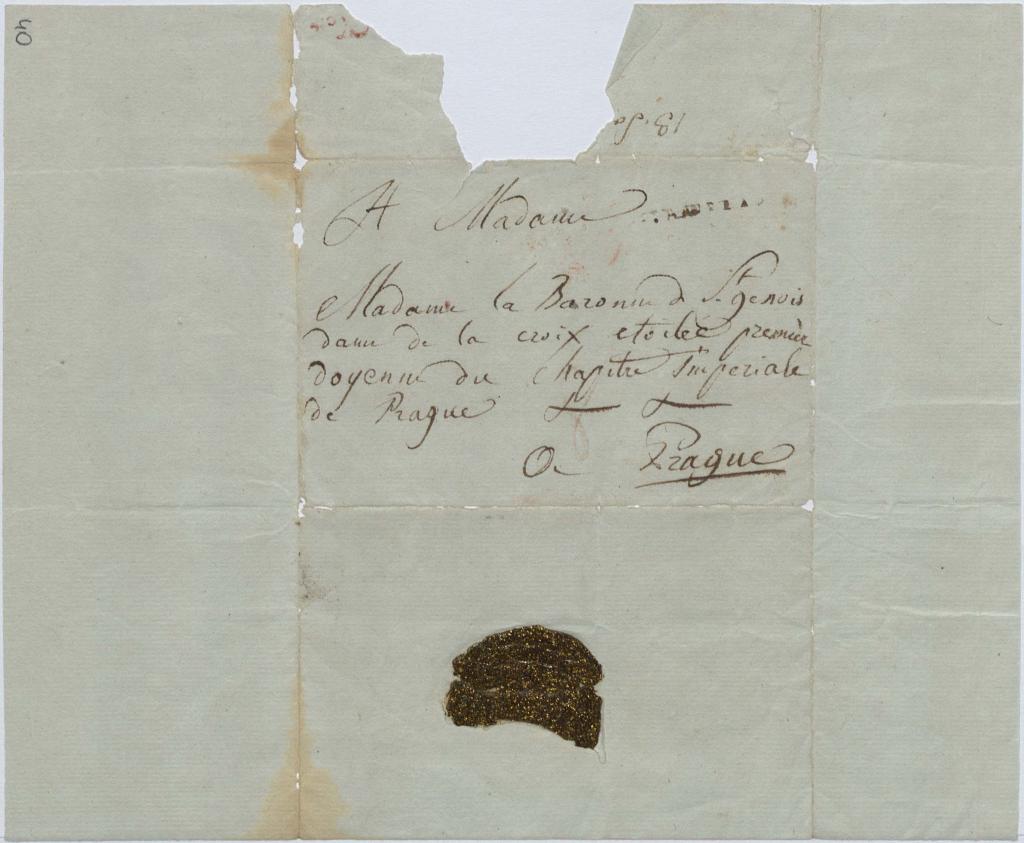 40
A Madame
Madame la Baronne de St. genois
dame de la croix etoilee premier
doyenne du Chapitre Imperiale
de Prague
a Prague